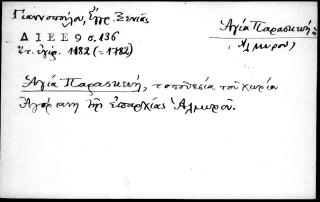 Γιαννοπούλου, Ἐγγρ. Ξενίας
Δ Ι Ε Ε 9 σ. 136
ἔτ. ἐγγρ. 1182 (= 1782)
Ἁγία Παρασκευή
(Ἁλμυροῦ)
Ἁγία Παρασκευή, τοποθεσία τοῦ χωρίου
Ἀγόριανη τῆς ἐπαρχίας Ἁλμυροῦ.